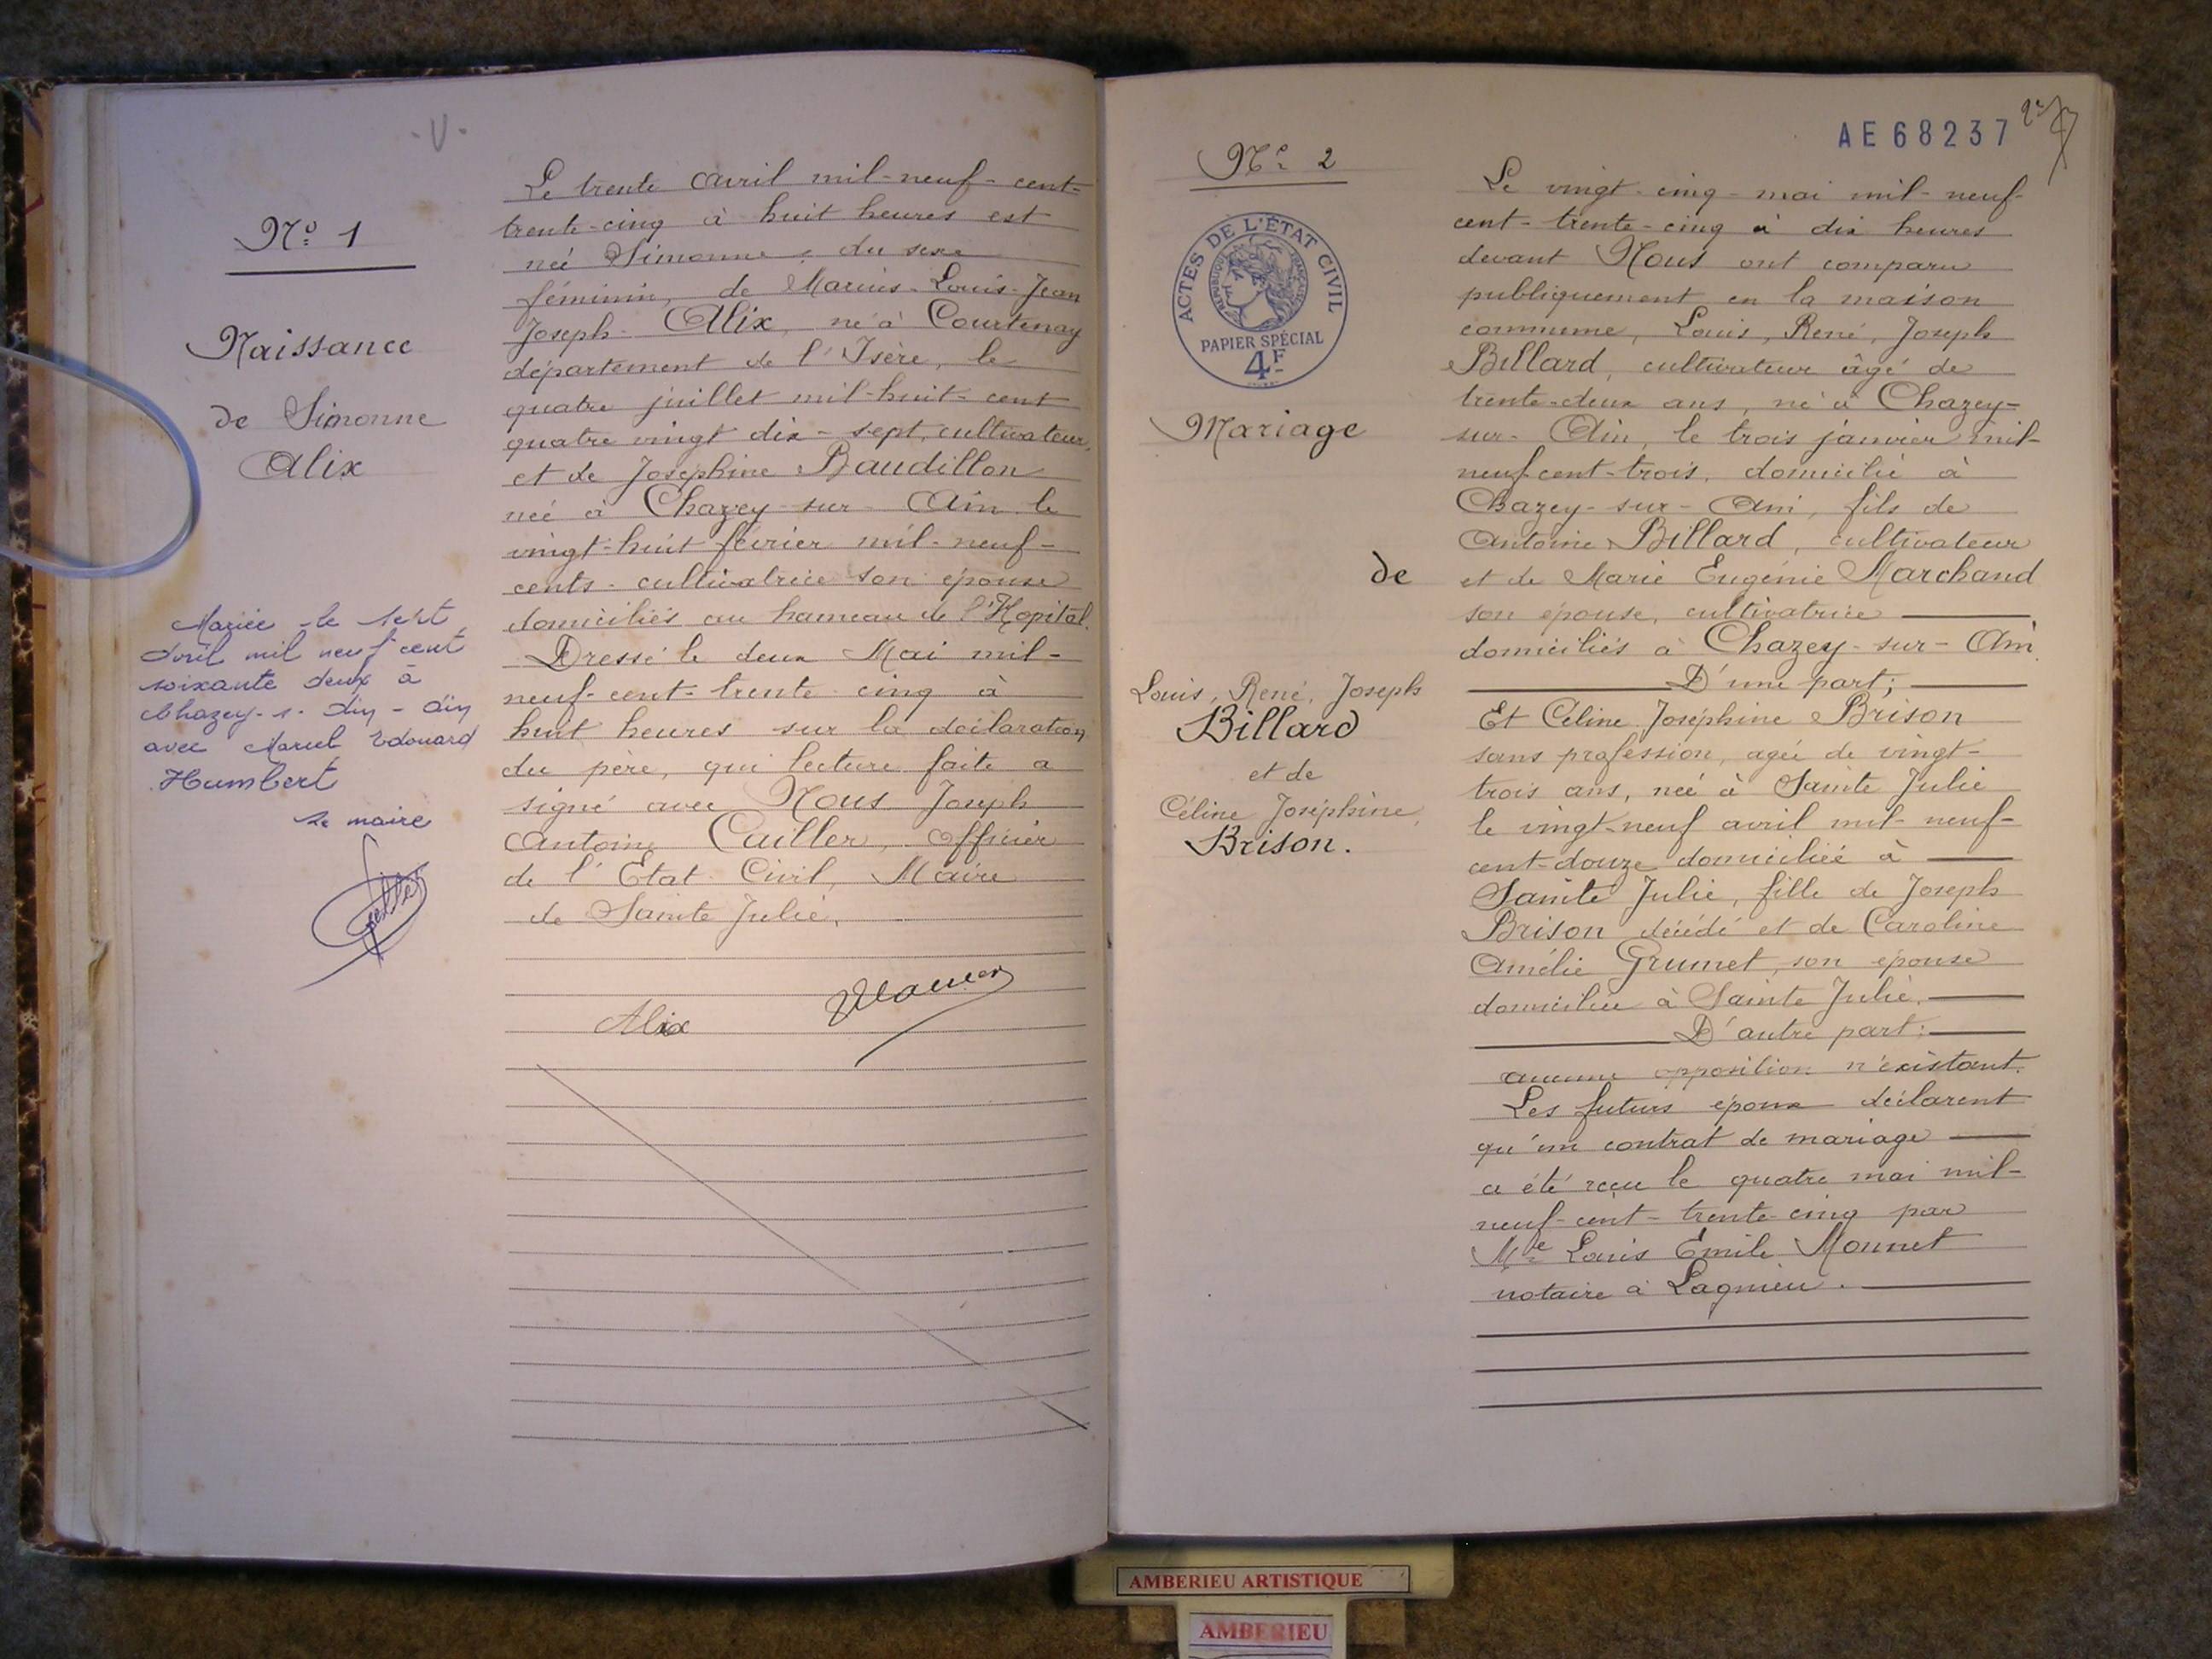 N° 1
Naissance
de Simonne
Alix
Mariée le sept
avril mil neuf cent
soixante deux à
Chazey-s-Ain - Ain
avec Marcel Edouard
Humbert
Le maire
Le trente avril mil-neuf-cent-
trente-cinq à huit heures est
née Simonne, du sexe
féminin, de Marius-Louis-Jean
Joseph Alix, né à Courtenay
département de l'Isère, le
quatre juillet mil-huit-cent
quatre vingt dix-sept, cultivateur,
et de Joséphine Baudillon
née à Chazey-sur-Ain le
vingt-huit février mil-neuf-
cents-cultivatrice son épouse
domiciliés au hameau de l'Hopital.
Dressé le deux Mai mil-
neuf-cent-trente-cinq à
huit heures sur la déclaration
du père, qui lecture faite a
signé avec Nous Joseph
Antoine Cailler, officier
de l'Etat Civil, Maire
de Sainte Julie.
Alix
AE68237
N° 2
ACTES DE L'ÉTAT CIVIL
RÉPUBLIQUE FRANÇAISE
PAPIER SPÉCIAL
4F
Mariage
de
Louis, René, Joseph
Billard
et de
Céline Joséphine,
Brison.
Le vingt-cinq-mai mil-neuf-
cent-trente-cinq à dix heures
devant Nous ont comparu
publiquement en la maison
commune, Louis, René, Joseph
Billard, cultivateur âgé de
trente-deux ans, né à Chazey-
sur-Ain, le trois janvier mil-
neuf cent-trois, domicilié à
Chazey-sur-Ain, fils de
Antoine Billard, cultivateur
et de Marie Eugénie Marchand
son épouse, cultivatrice
domiciliés à Chazey-sur-Ain.
D'une part;
Et Céline Joséphine Brison
sans profession, agée de vingt-
trois ans, née à Sainte Julie
le vingt-neuf avril mil-neuf-
cent-douze domiciliée à
Sainte Julie, fille de Joseph
Brison décédé et de Caroline
Amélie Grumet, son épouse
domiciliée à Sainte Julie.
D'autre part:
aucune opposition n'existant.
Les futurs époux déclarent
qu'un contrat de mariage
a été reçu le quatre mai mil-
neuf-cent-trente-cinq par
Me Louis Emile Monnet
notaire à Lagnieu.
AMBERIEU ARTISTIQUE
AMBERIEU